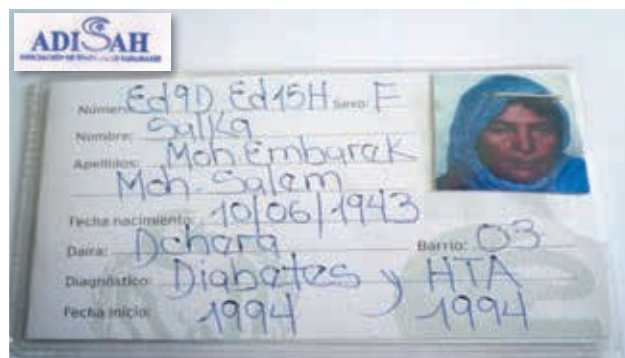 ADISAH
ASOCIACIÓN DE
Número: Ed9D Ed15H Sexo: F
Nombre: Salka
Apellidos: Moh Embarek
Moh. Salem
Fecha nacimiento: 10/06/1943
Daira: Dchera Barrio: 03
Diagnóstico: Diabetes y HTA
Fecha inicio: 1994 1994